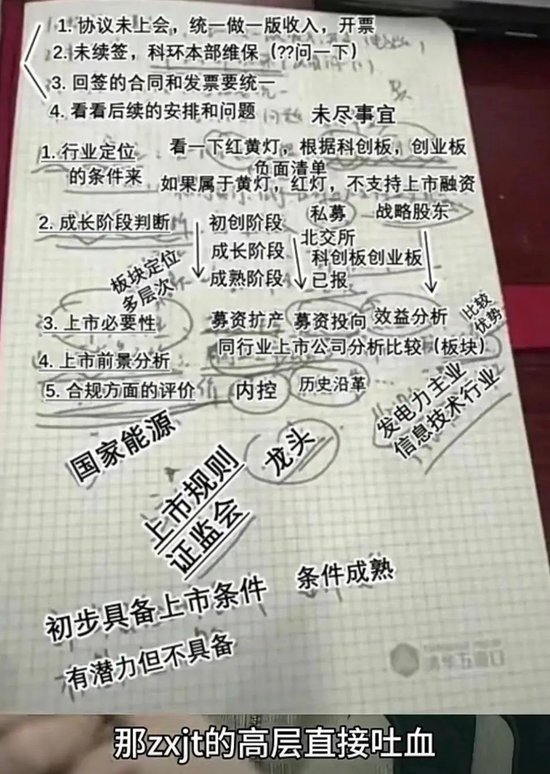 1. 协议未上会，统一做一版收入，开票
2. 未续签，科环本部维保（??问一下）
3. 回签的合同和发票要统一
4. 看看后续的安排和问题
未尽事宜
1. 行业定位的条件来
看一下红黄灯，根据科创板，创业板
负面清单
如果属于黄灯，红灯，不支持上市融资
2. 成长阶段判断
初创阶段
私募
战略股东
成长阶段
北交所
科创板创业板
成熟阶段
已报
板块定位
多层次
3. 上市必要性
募资扩产
募资投向
效益分析
比较
优势
4. 上市前景分析
同行业上市公司分析比较（板块）
5. 合规方面的评价
内控
历史沿革
发电力主业
信息技术行业
国家能源
上市规则
证监会
龙头
初步具备上市条件
条件成熟
有潜力但不具备
清华五道口
那zxjt的高层直接吐血